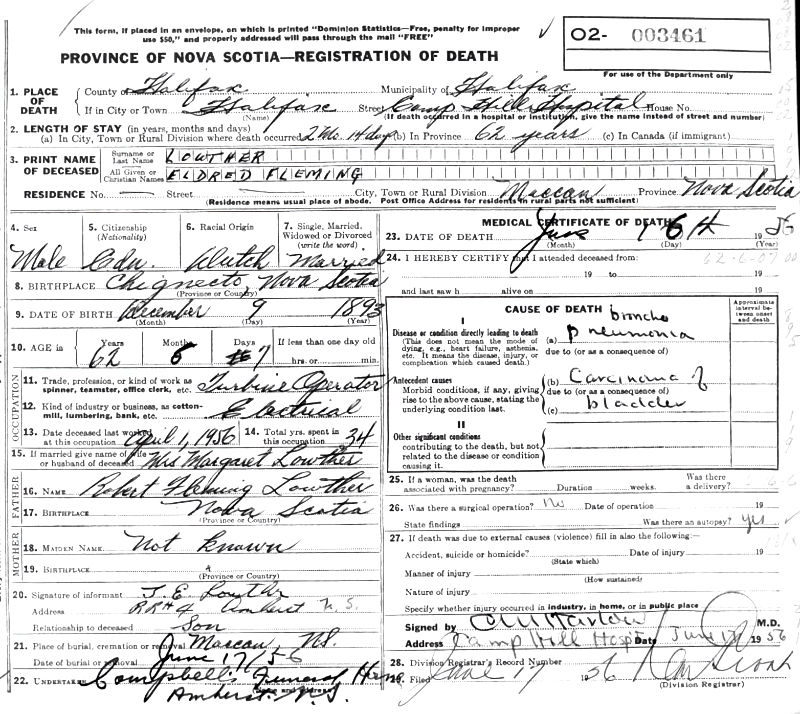 This form, if placed in an envelope, on which is printed "Dominion Statistics—Free, penalty for improper
use $50," and properly addressed will pass through the mail "FREE"
O2- 003461
For use of the Department only
PROVINCE OF NOVA SCOTIA—REGISTRATION OF DEATH
1. PLACE OF DEATH
County of Halifax Municipality of Halifax
If in City or Town Halifax Street Camp Hill Hospital House No.
(Name) (If death occurred in a hospital or institution, give the name instead of street and number)
2. LENGTH OF STAY (in years, months and days)
(a) In City, Town or Rural Division where death occurred 2 Mo. 14 days (b) In Province 62 years (c) In Canada (if immigrant)
3. PRINT NAME OF DECEASED
Surname or Last Name LOWTHER
All Given or Christian Names ELDRED FLEMING
RESIDENCE No. — Street — City, Town or Rural Division Maccan Province Nova Scotia
(Residence means usual place of abode. Post Office Address for residents in rural parts not sufficient)
4. Sex Male
5. Citizenship (Nationality) Cdn.
6. Racial Origin Dutch
7. Single, Married, Widowed or Divorced (write the word) Married
8. BIRTHPLACE Chignecto, Nova Scotia
(Province or Country)
9. DATE OF BIRTH December 9 1893
(Month) (Day) (Year)
10. AGE in Years Months Days If less than one day
62 6 7 hrs. or min.
OCCUPATION
11. Trade, profession, or kind of work as spinner, teamster, office clerk, etc. Turbine Operator
12. Kind of industry or business, as cotton-mill, lumbering, bank, etc. Electrical
13. Date deceased last worked at this occupation April 1, 1956
14. Total yrs. spent in this occupation 34
15. If married give name of wife or husband of deceased Mrs Margaret Lowther
FATHER
16. NAME Robert Fleming Lowther
17. BIRTHPLACE Nova Scotia
(Province or Country)
MOTHER
18. MAIDEN NAME Not known
19. BIRTHPLACE
(Province or Country)
20. Signature of informant J. E. Lowther
Address RR#4 Amherst N.S.
Relationship to deceased Son
21. Place of burial, cremation or removal Maccan, N.S.
Date of burial or removal June 17/56
22. UNDERTAKER Campbell's Funeral Home
Amherst N.S.
(Name and address)
MEDICAL CERTIFICATE OF DEATH
23. DATE OF DEATH June 16th 1956
(Month) (Day) (Year)
24. I HEREBY CERTIFY that I attended deceased from:
19 to 19
and last saw h alive on 19
CAUSE OF DEATH
Approximate interval between onset and death
I
Disease or condition directly leading to death
(This does not mean the mode of dying, e.g., heart failure, asthenia, etc. It means the disease, injury, or complication which caused death.)
(a) broncho pneumonia
due to (or as a consequence of)
Antecedent causes
Morbid conditions, if any, giving rise to the above cause, stating the underlying condition last.
(b) Carcinoma of
due to (or as a consequence of)
bladder
(c)
II
Other significant conditions
contributing to the death, but not related to the disease or condition causing it.
25. If a woman, was the death associated with pregnancy? Duration weeks. Was there a delivery?
26. Was there a surgical operation? No Date of operation 19
State findings Was there an autopsy? yes
27. If death was due to external causes (violence) fill in also the following:—
Accident, suicide or homicide? Date of injury 19
(State which)
Manner of injury
(How sustained)
Nature of injury
Specify whether injury occurred in industry, in home, or in public place
Signed by M.D.
Address Camp Hill Hosp Date June 1956
28. Division Registrar's Record Number
29. Filed June 17 1956
(Division Registrar)